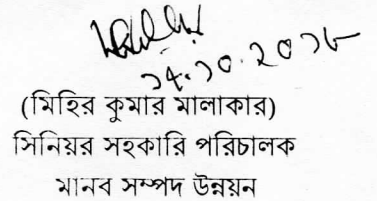 ১৫.১০.২০১৮
(মিহির কুমার মালাকার)
সিনিয়র সহকারি পরিচালক
মানব সম্পদ উন্নয়ন